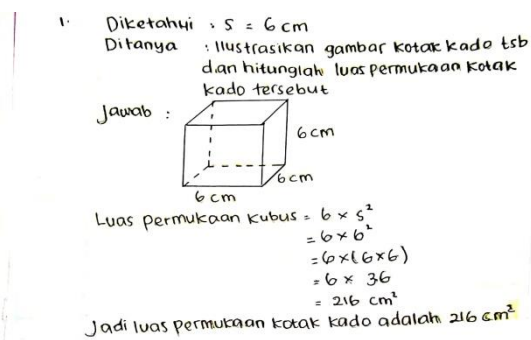 1. Diketahui : s = 6 cm
Ditanya : Ilustrasikan gambar kotak kado tsb
dan hitunglah luas permukaan kotak
kado tersebut
Jawab :
6 cm
6 cm
6 cm
Luas permukaan kubus = 6 × s²
= 6 × 6²
= 6 × (6 × 6)
= 6 × 36
= 216 cm²
Jadi luas permukaan kotak kado adalah 216 cm²